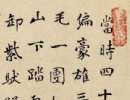 當時四十
偏豪雄三
毛一團
山下踏
卸紫馱